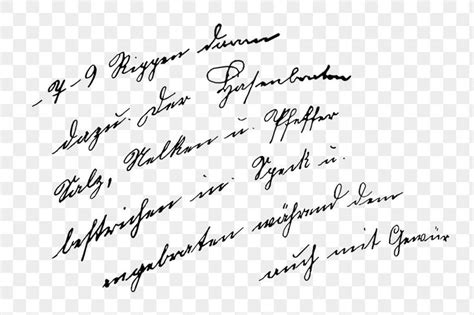 -7-9 Rippen daran
dazu. Der Hasenbraten
Salz, Nelken u. Pfeffer
bestrichen in. Speck u.
angebraten während dem
auch mit Gewür